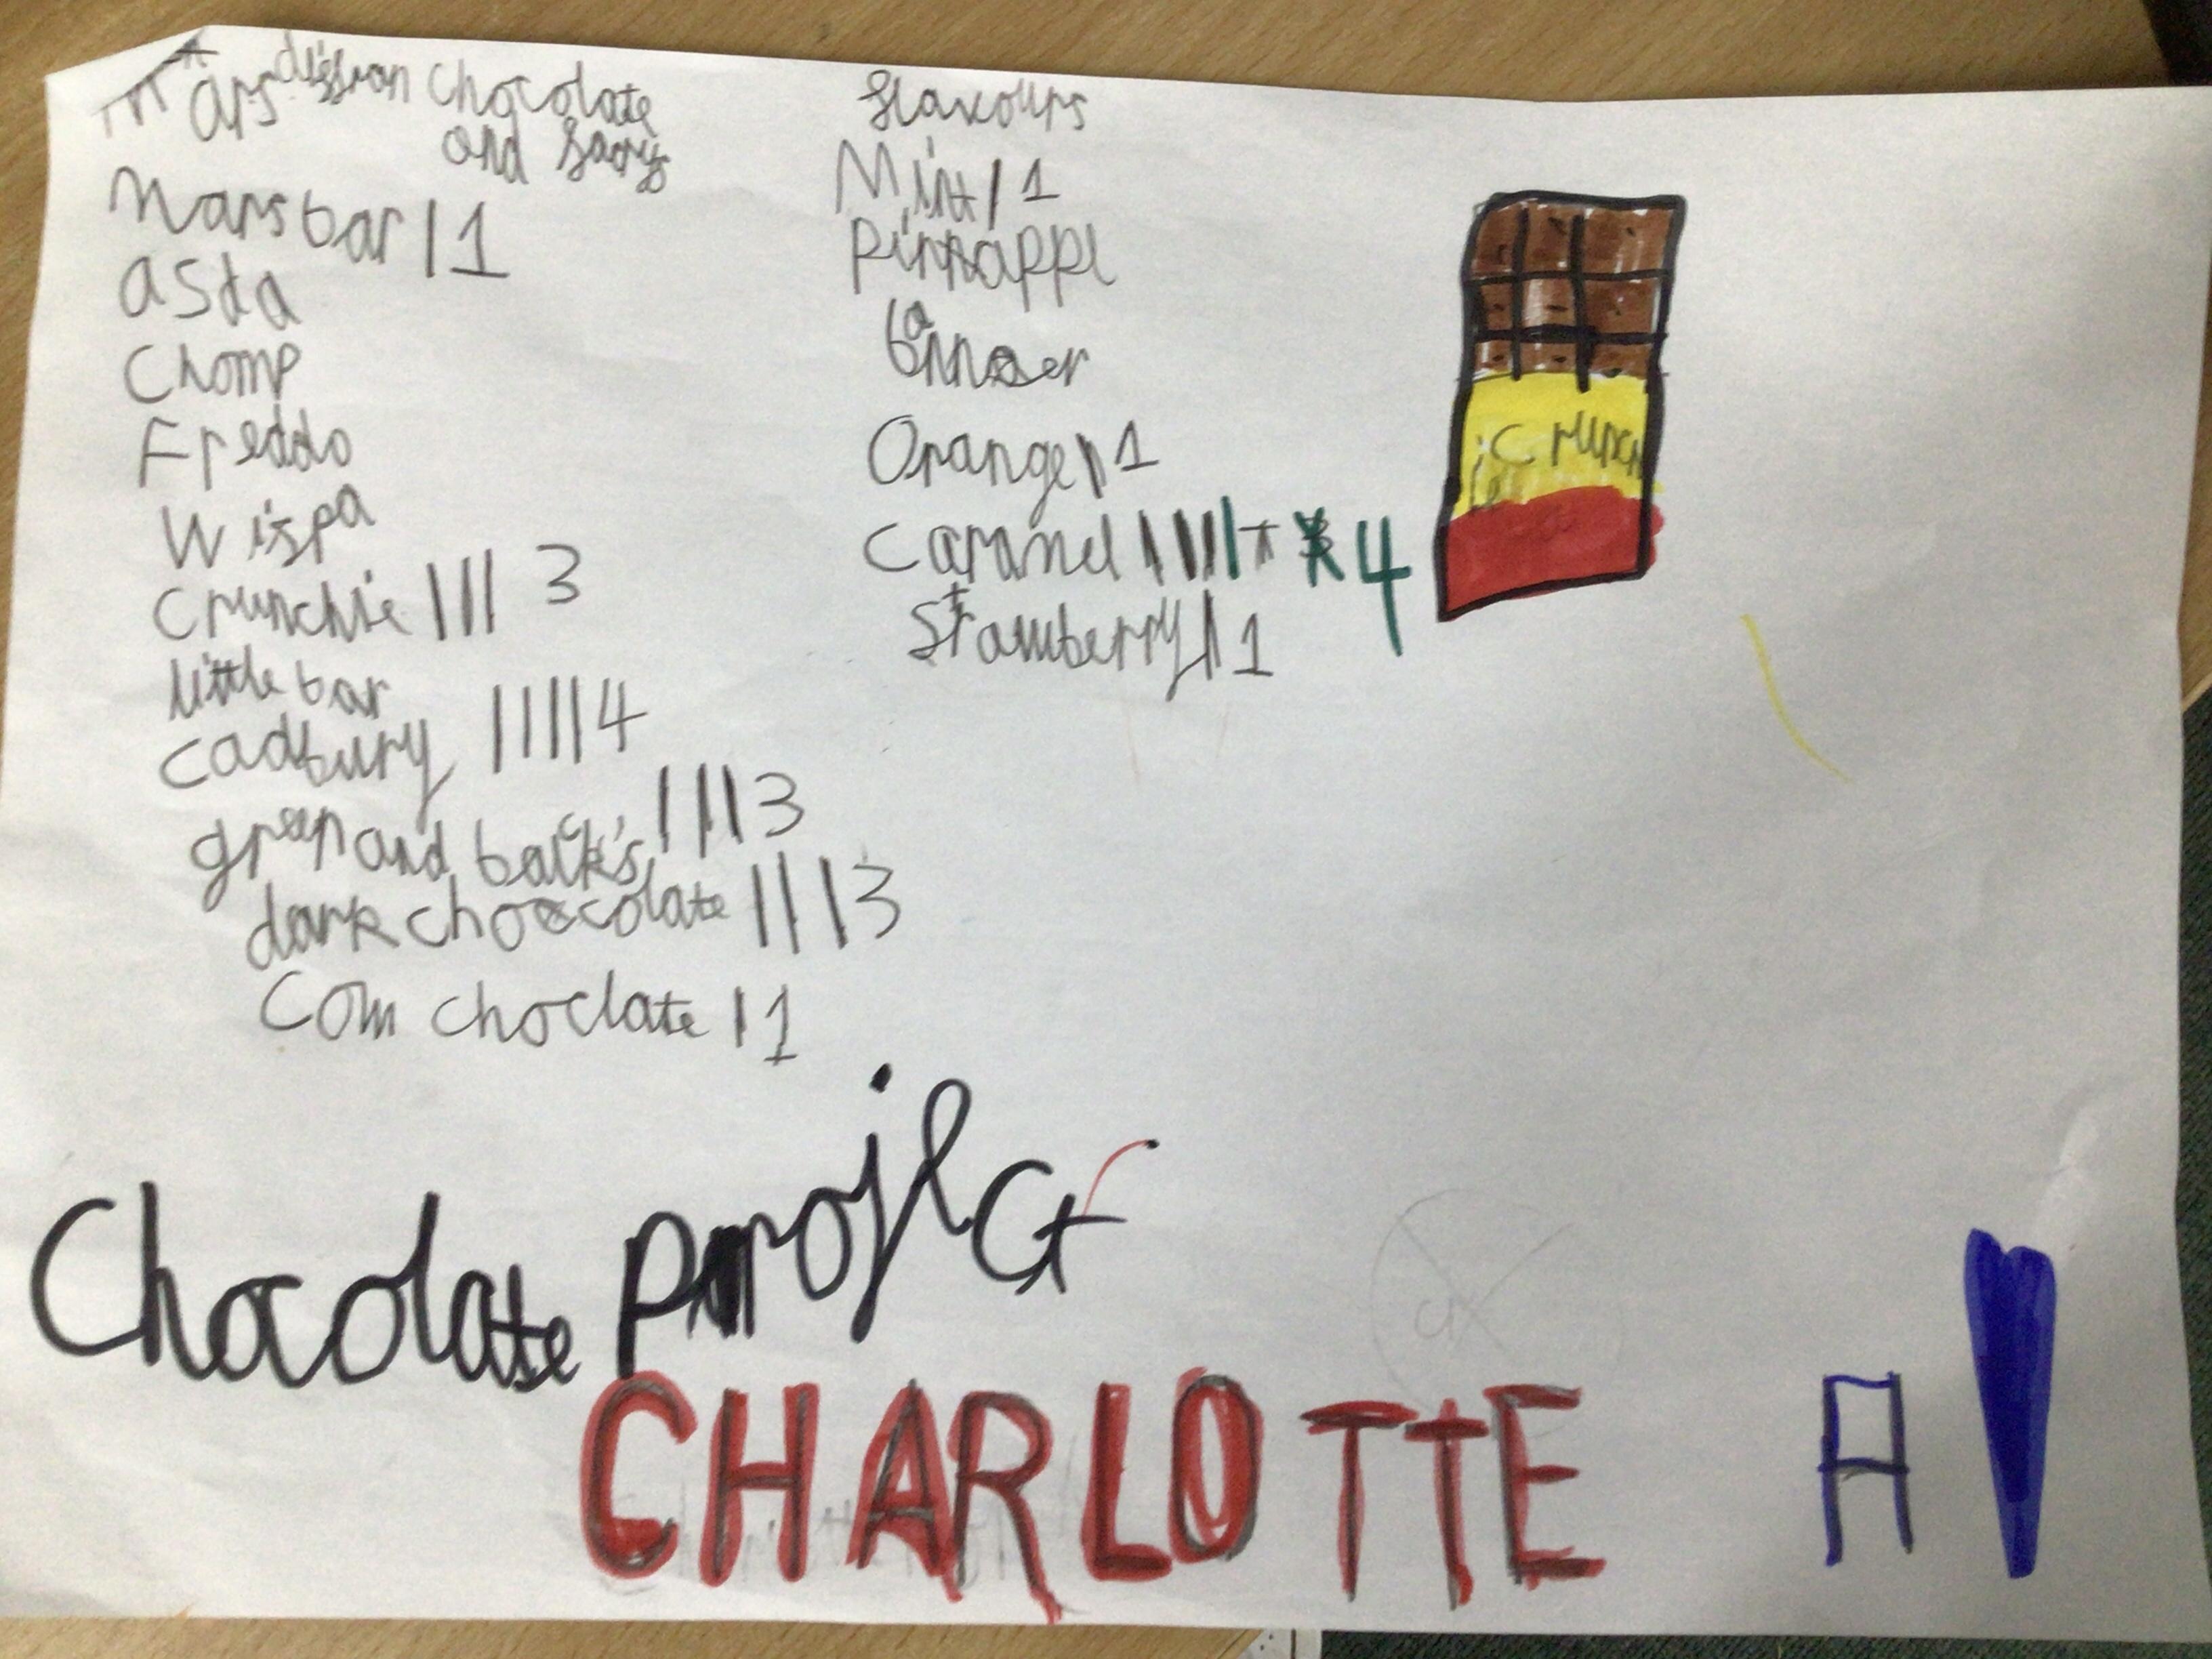 chocolate
and
Mars bar | 1
asda
Chomp
Freddo
Wispa
crunchie ||| 3
little bar
cadbury ||||| 4
green and back's ||| 3
dark chocolate ||| 3
Com choclate | 1
flavours
Mint | 1
pinnappl
Orange | 1
Caramel 4
Strawberry | 1
Crunch
Chocolate project
CHARLOTTE A